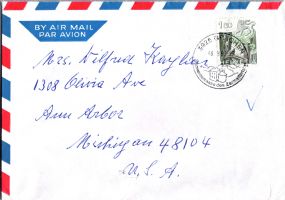 BY AIR MAIL
PAR AVION
Mrs. Wilfred Kaplan
1308 Olivia Ave
Ann Arbor
Michigan 48104
U.S.A.